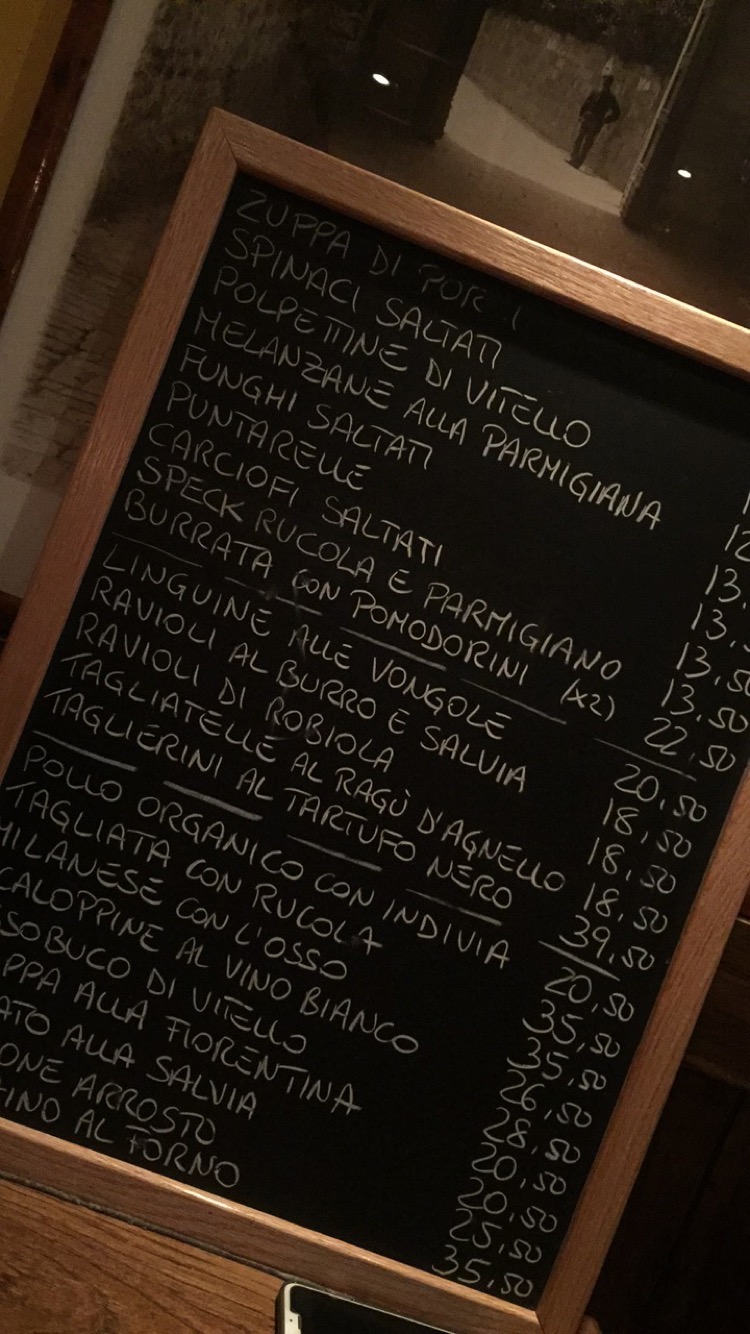 ZUPPA DI
SPINACI SALTATI
POLPETTINE DI VITELLO
MELANZANE ALLA PARMIGIANA 12
FUNGHI SALTATI 13.
PUNTARELLE 13.5
CARCIOFI SALTATI 13.50
SPECK RUCOLA E PARMIGIANO 13.50
BURRATA CON POMODORINI (x2) 22.50
LINGUINE ALLE VONGOLE 20.50
RAVIOLI AL BURRO E SALVIA 18.50
RAVIOLI DI ROBIOLA 18.50
TAGLIATELLE AL RAGÙ D'AGNELLO 18.50
TAGLIERINI AL TARTUFO NERO 39.50
POLLO ORGANICO CON INDIVIA 20.50
TAGLIATA CON RUCOLA 35.50
MILANESE CON L'OSSO 35.50
CALOPPINE AL VINO BIANCO 26.50
SSOBUCO DI VITELLO 28.50
PPA ALLA FIORENTINA 20.50
ATO ALLA SALVIA 20.50
ONE ARROSTO 25.50
INO AL FORNO 35.50